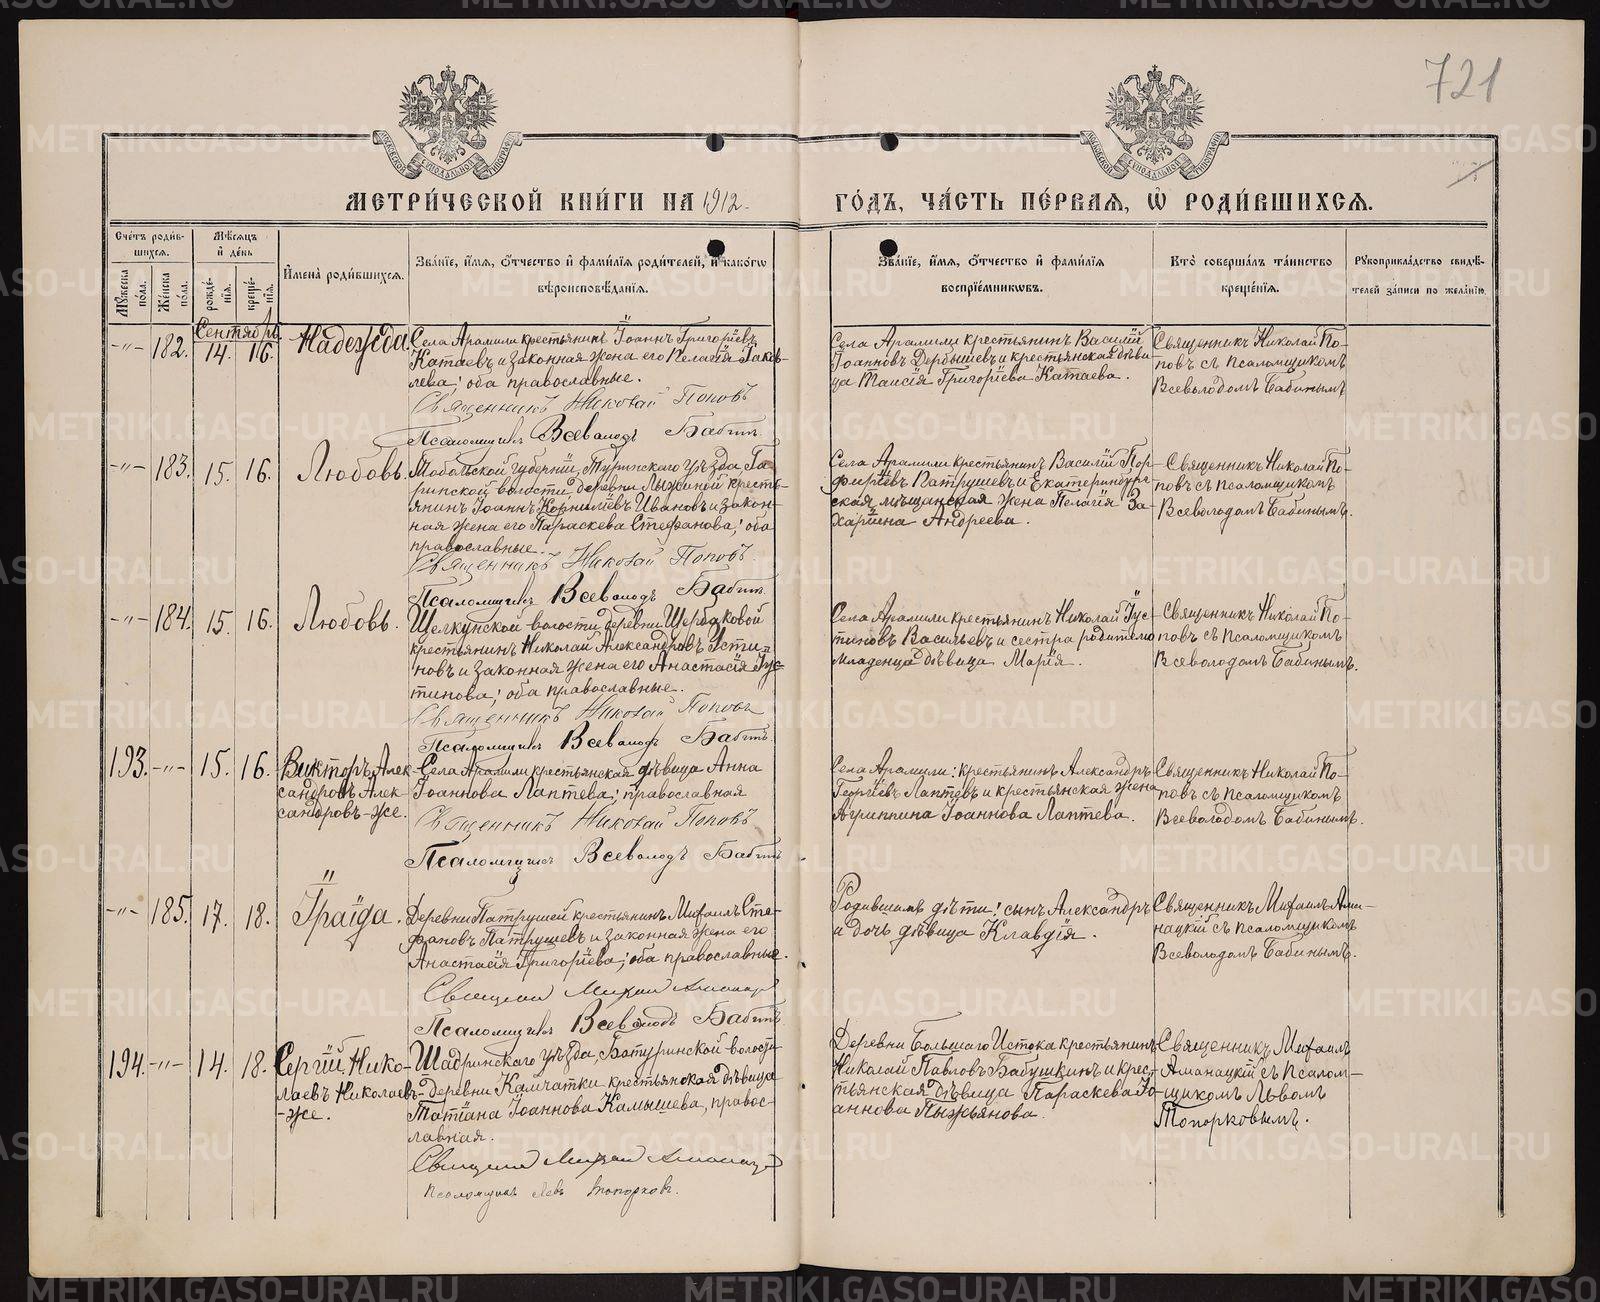 721
МЕТРИ́ЧЕСКОЙ КНИ́ГИ НА 1912
ГО́ДЪ, ЧА́СТЬ ПЕ́РВАЯ, Ѡ РОДИ́ВШИХСЯ.
Сче́тъ роди́в-
шихся.
Му́жеска по́ла.
Же́нска по́ла.
Мѣ́сяцъ
и де́нь
рожде́-
нія.
креще́-
нія.
Имена̀ роди́вшихся.
Зва́ніе, и́мя, о́тчество и фами́лія роди́телей, и како́гѡ
вѣроисповѣ́данія.
Зва́ніе, и́мя, о́тчество и фами́лія
воспріе́мниковъ.
Кто̀ соверша́лъ та́инство
креще́нія.
Рукоприкла́дство свидѣ́-
телей за́писи по жела́нію.
Сентябрь
-"- 182. 14. 16. Надежда.
Села Арамили крестьянинъ Іоаннъ Григоріевъ
Катаевъ и законная жена его Пелагія Іаков-
лева; оба православные.
Священникъ Николай Поповъ
Псаломщикъ Всеволодъ Бабинъ
Села Арамили крестьянинъ Василій
Іоанновъ Дербышевъ и крестьянская дѣви-
ца Таисія Григоріева Катаева.
Священникъ Николай По-
повъ съ псаломщикомъ
Всеволодомъ Бабинымъ
-"- 183. 15. 16. Любовь.
Тобольской губерніи, Туринскаго уѣзда, Га-
ринской волости, деревни Лыжиной кресть-
янинъ Іоаннъ Корниліевъ Ивановъ и закон-
ная жена его Параскева Стефанова; оба
православные.
Священникъ Николай Поповъ
Псаломщикъ Всеволодъ Бабинъ
Села Арамили крестьянинъ Василій Пор-
фиріевъ Патрушевъ и Екатеринбург-
ская мѣщанская жена Пелагія За-
харіина Андреева.
Священникъ Николай По-
повъ съ псаломщикомъ
Всеволодомъ Бабинымъ.
-"- 184. 15. 16. Любовь.
Щелкунской волости, деревни Щербаковой
крестьянинъ Николай Александровъ Усти-
новъ и законная жена его Анастасія Іус-
тинова; оба православные.
Священникъ Николай Поповъ
Псаломщикъ Всеволодъ Бабинъ
Села Арамили крестьянинъ Николай Іус-
тиновъ Васильевъ и сестра родителю
младенца дѣвица Марія.
Священникъ Николай По-
повъ съ псаломщикомъ
Всеволодомъ Бабинымъ.
193. -"- 15. 16. Викторъ Алек-
сандровъ Алек-
сандровъ-же.
Села Арамили крестьянская дѣвица Анна
Іоаннова Лаптева; православная
Священникъ Николай Поповъ
Псаломщикъ Всеволодъ Бабинъ
Села Арамили: крестьянинъ Александръ
Георгіевъ Лаптевъ и крестьянская жена
Агриппина Іоаннова Лаптева.
Священникъ Николай По-
повъ съ псаломщикомъ
Всеволодомъ Бабинымъ.
-"- 185. 17. 18. Іраида.
Деревни Патрушей крестьянинъ Михаилъ Сте-
фановъ Патрушевъ и законная жена его
Анастасія Григоріева; оба православные.
Священникъ Михаилъ Аманацкій
Псаломщикъ Всеволодъ Бабинъ
Родившимъ дѣти: сынъ Александръ
и дочь дѣвица Клавдія.
Священникъ Михаилъ Ама-
нацкій съ псаломщикомъ
Всеволодомъ Бабинымъ.
194. -"- 14. 18. Сергій Нико-
лаевъ Николаевъ-
-же.
Шадринскаго уѣзда, Батуринской волости
деревни Камчатки крестьянская дѣвица
Татіана Іоаннова Камышева, правос-
лавная.
Священникъ Михаилъ Аманацкій
Псаломщикъ Левъ Топорковъ.
Деревни Большаго Истока крестьянинъ
Николай Павловъ Бабушкинъ и крес-
тьянская дѣвица Параскева Іо-
аннова Пыжьянова.
Священникъ Михаилъ
Аманацкій съ псалом-
щикомъ Львомъ
Топорковымъ.
METRIKI.GASO-URAL.RU